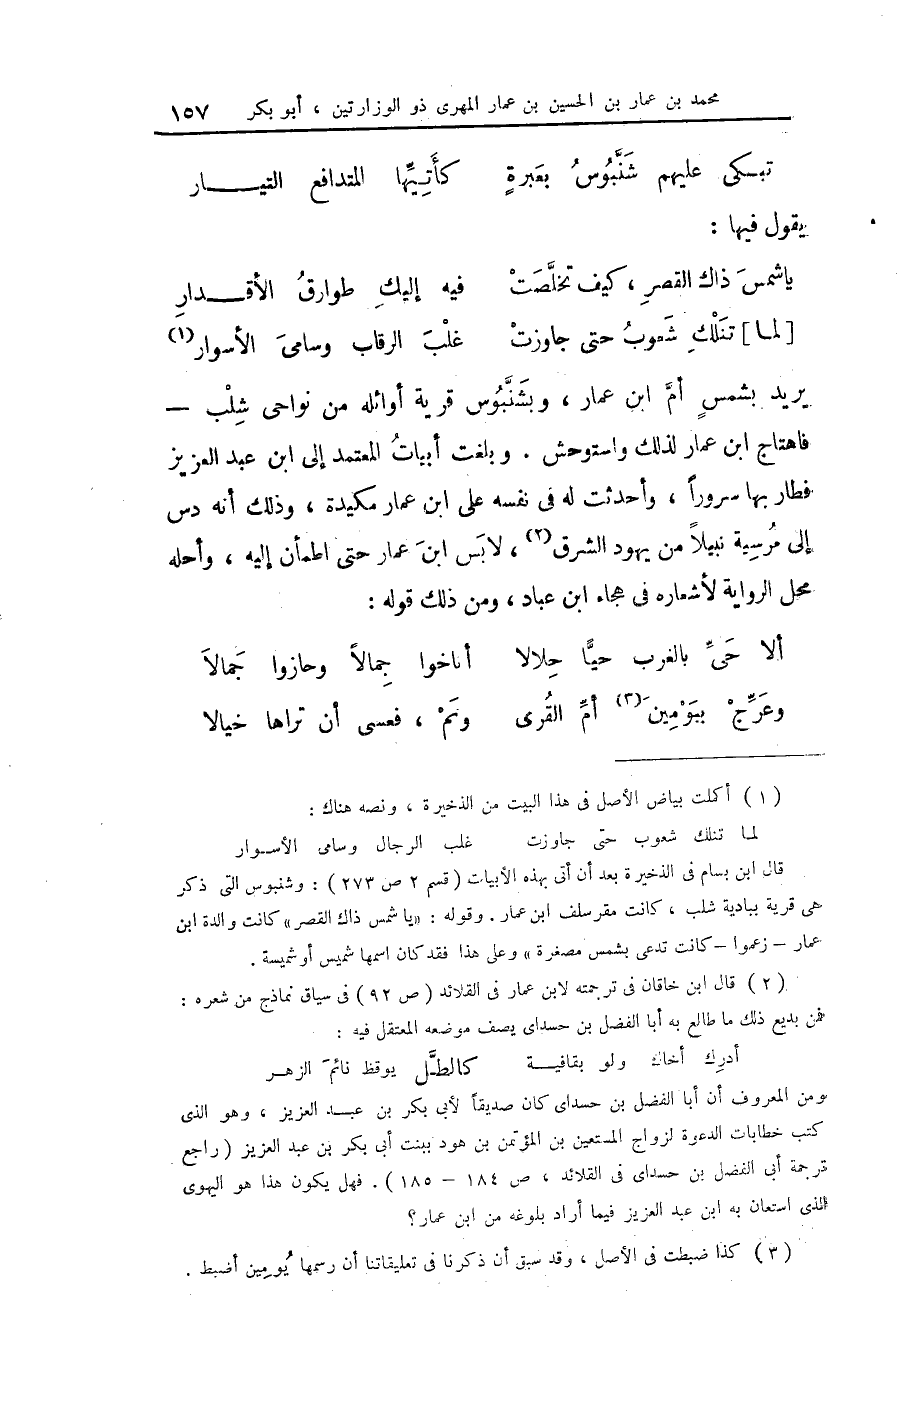 محمد بن عمار بن الحسين بن عمار المهرى ذو الوزارتين ، أبو بكر ١٥٧
تبـكى عليهم شَنَّبُوسُ بعَبرةٍ كأَتِيِّها المتدافع التيـــــار
يقول فيها :
ياشمسَ ذاكَ القصرِ ، كيف تخلَّصَتْ فيه إليكِ طوارقُ الأقــدارِ
[لمـا] تنَلْكِ شَعوبُ حتى جاوزتْ غلْبَ الرقاب وسامىَ الأسوار(١)
يريد بشمسٍ أمَّ ابن عمار ، وبشَنَّبُوس قرية أوائله من نواحى شِلْب —
فاهتاج ابن عمار لذلك واستوحش . وبلغت أبياتُ المعتمد إلى ابن عبد العزيز
فطار بها سروراً ، وأحدثت له فى نفسه على ابن عمار مكيدة ، وذلك أنه دس
إلى مُرسِية نبيلاً من يهود الشرق(٢) ، لابَس ابنَ عمار حتى اطمأن إليه ، وأحله
محل الرواية لأشعاره فى هجاء ابن عباد ، ومن ذلك قوله :
ألا حَىِّ بالغرب حيًّا حِلالا أناخوا جِمالاً وحازوا جَمالاَ
وعَرِّجْ بيَوْمِينَ(٣) أمِّ القُرى ونَمْ ، فعسى أن تراها خيالا
(١) أكملت بياض الأصل فى هذا البيت من الذخيرة ، ونصه هناك :
لما تنلك شعوب حتّى جاوزت غلب الرجال وسامى الأسـوار
قال ابن بسام فى الذخيرة بعد أن أتى بهذه الأبيات (قسم ٢ ص ٢٧٣) : وشنبوس التى ذكر
هى قرية ببادية شلب ، كانت مقر سلف ابن عمار . وقوله : «يا شمس ذاك القصر» كانت والدة ابن
عمار – زعموا – كانت تدعى بشمس مصغرة» وعلى هذا فقد كان اسمها شميس أو شميسة .
(٢) قال ابن خاقان فى ترجمته لابن عمار فى القلائد (ص ٩٢) فى سياق نماذج من شعره :
فمن بديع ذلك ما طالع به أبا الفضل بن حسداى يصف موضعه المعتقل فيه :
أدرِك أخاك ولو بقافيــة كالطـَّل يوقظ نائمَ الزهـر
ومن المعروف أن أبا الفضل بن حسداى كان صديقاً لأبى بكر بن عبـد العزيز ، وهو الذى
كتب خطابات الدعوة لزواج المستعين بن المؤتمن بن هود ببنت أبى بكر بن عبد العزيز (راجع
ترجمة أبى الفضل بن حسداى فى القلائد ، ص ١٨٤ – ١٨٥) . فهل يكون هذا هو اليهوى
الذى استعان به ابن عبد العزيز فيما أراد بلوغه من ابن عمار؟
(٣) كذا ضبطت فى الأصل ، وقد سبق أن ذكرنا فى تعليقاتنا أن رسمها يُومِين أضبط .